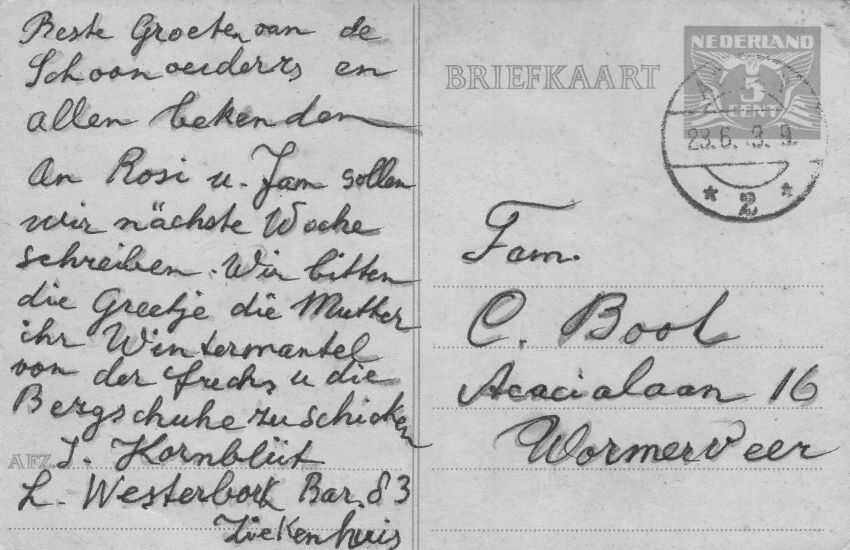 Beste Groeten van de
Schoonouders en
allen bekenden
An Rosi u. Jam sollen
wir nächste Woche
schreiben. Wir bitten
die Greetje die Mutter
ihr Wintermantel
von der u die
Bergschuhe zu schicken
AFZ. J. Kornblüt
L. Westerbork Bar. 83
Ziekenhuis
BRIEFKAART
NEDERLAND
5
CENT
23.6. 3. 9.
* 2 *
Fam.
C. Bool
Acacialaan 16
Wormerveer